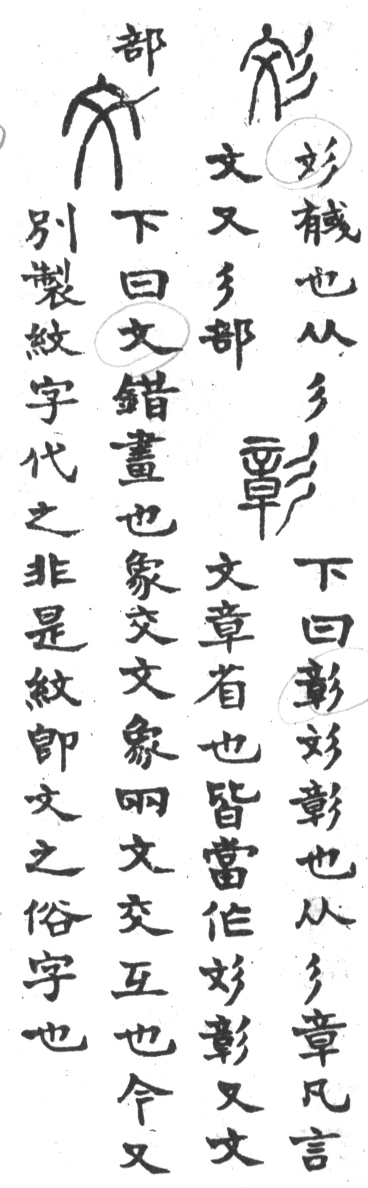 彣
彣戫也从彡
文又彡部
彰
下曰彰彣彰也从彡章凡言
文章省也皆當作彣彰又文
部
文
下曰文錯畫也象交文象兩文交互也今又
別製紋字代之非是紋即文之俗字也